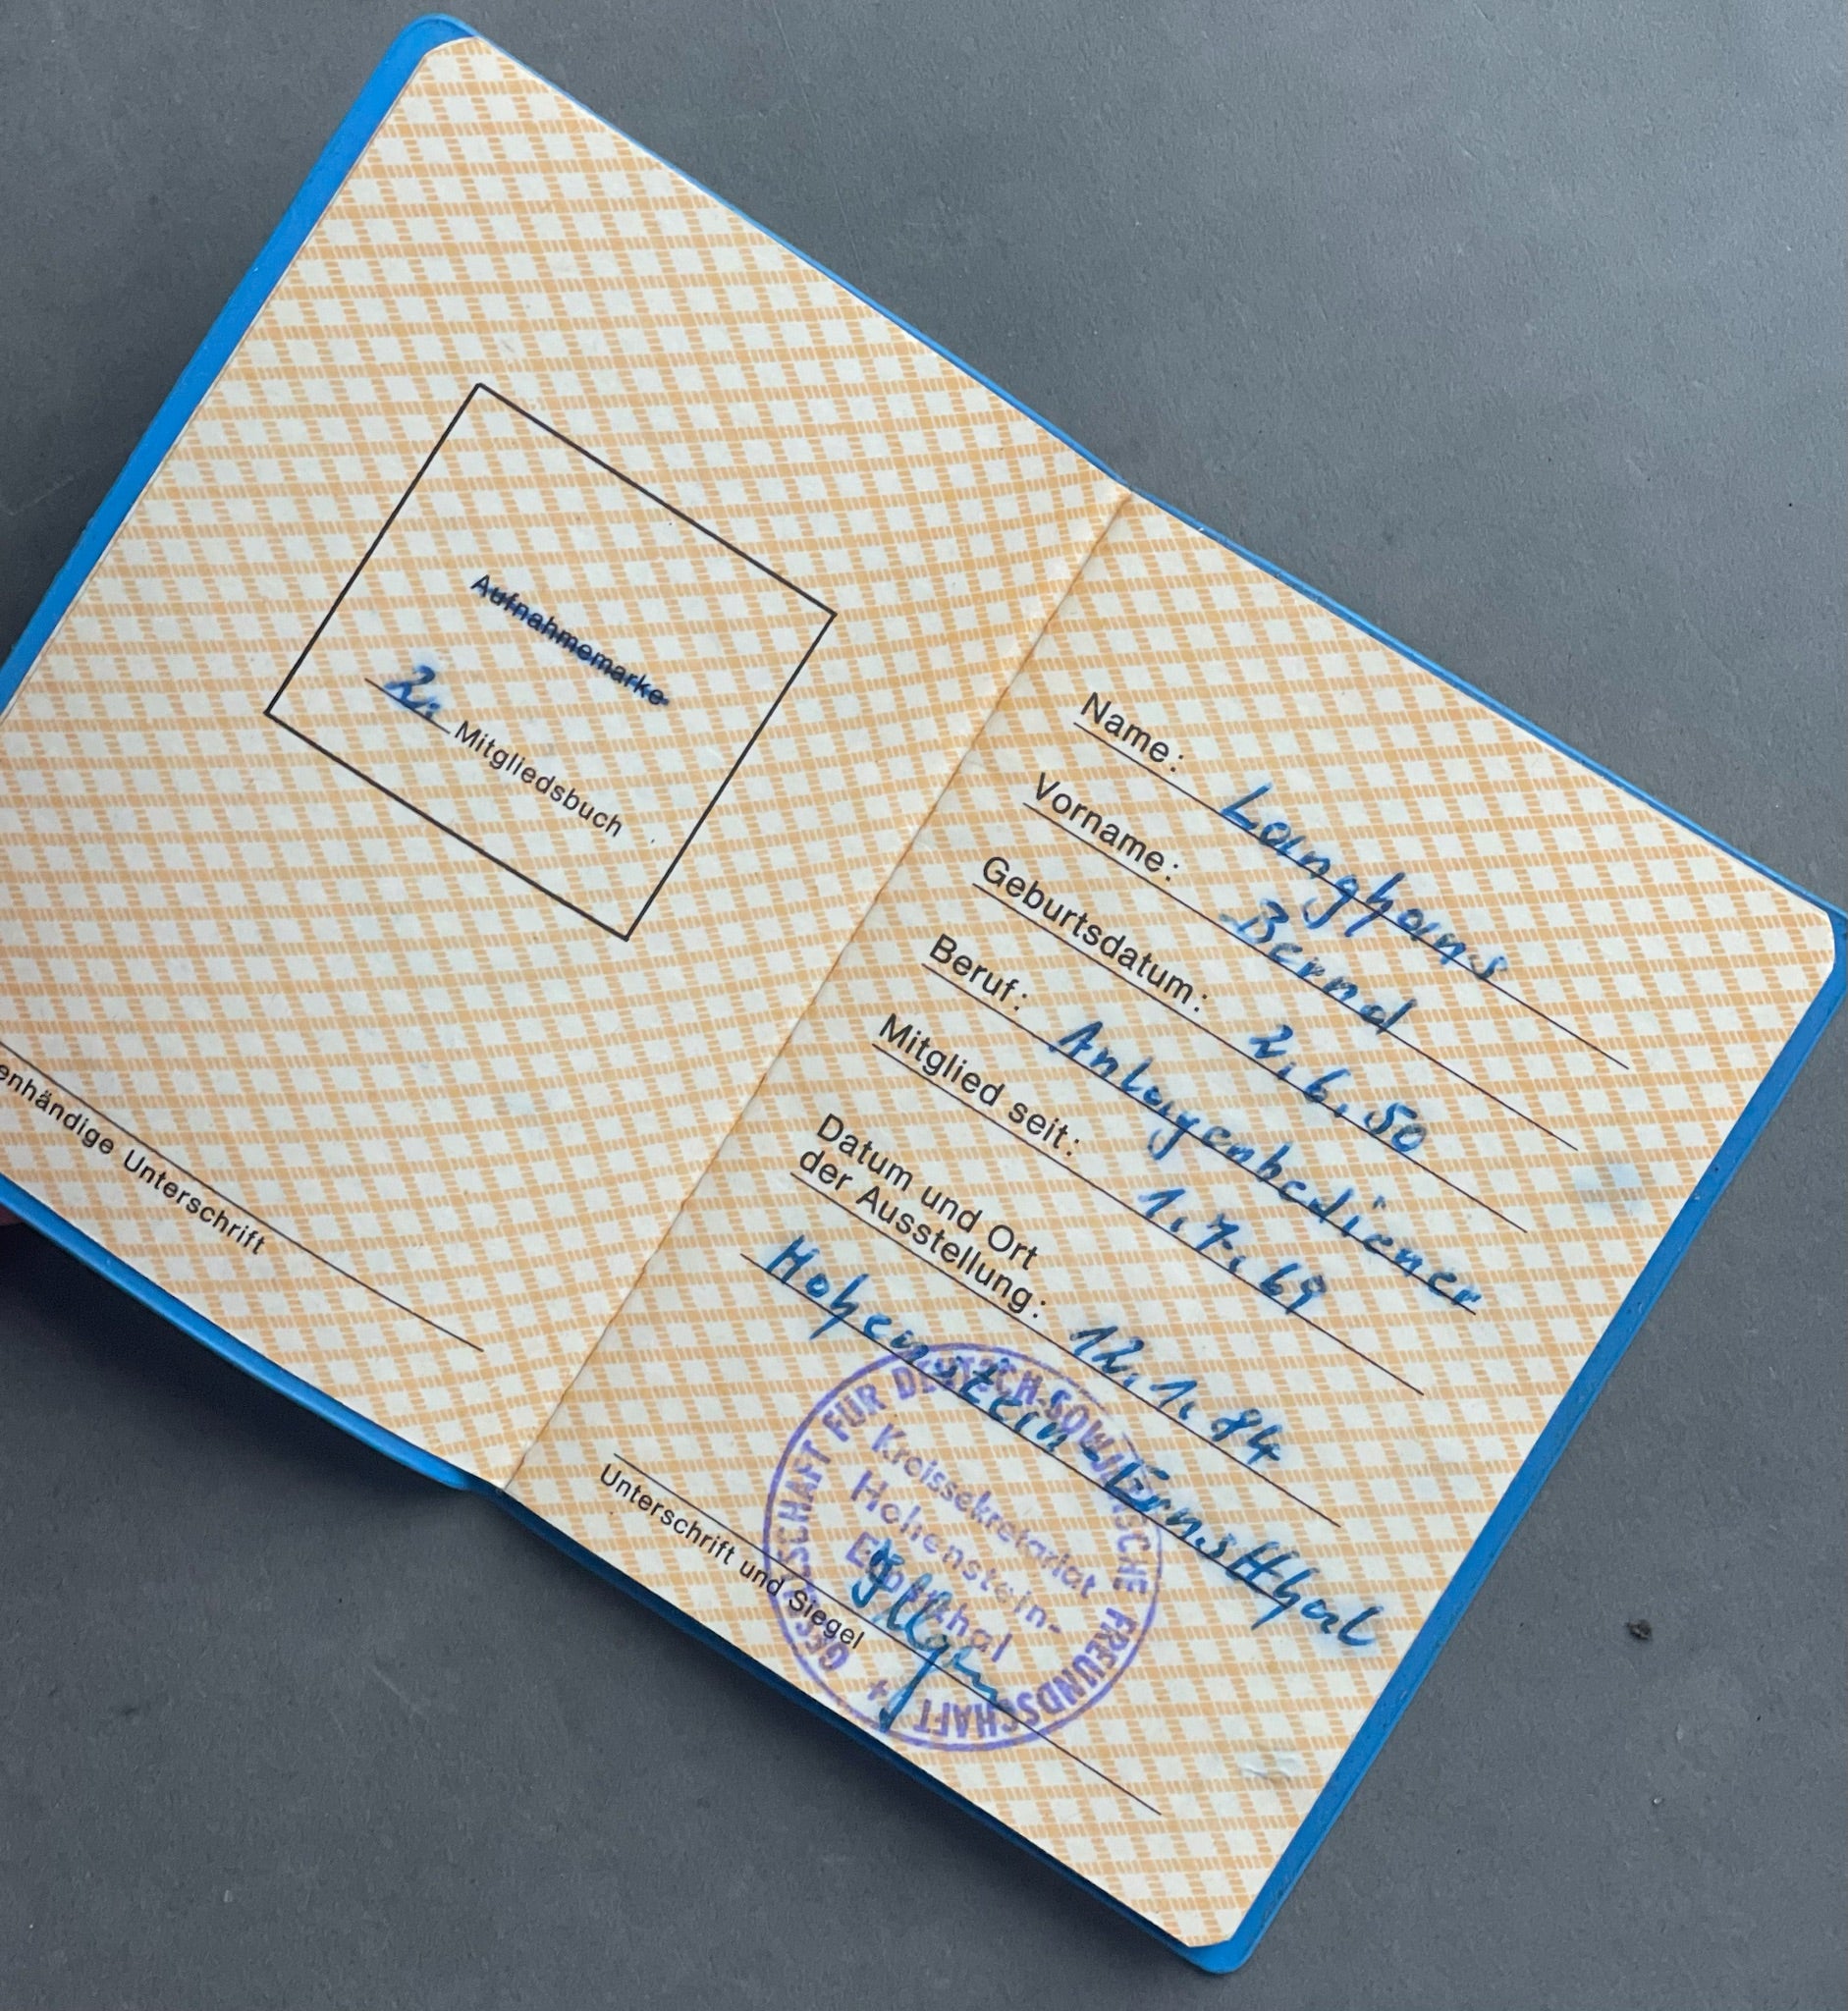 Aufnahmemarke
2. Mitgliedsbuch
enhändige Unterschrift
Name: Langhans
Vorname: Bernd
Geburtsdatum: 2.6.50
Beruf: Anlagenbediener
Mitglied seit: 1.7.69
Datum und Ort
der Ausstellung: 12.1.84
Hohenstein-Ernstthal
GESELLSCHAFT FÜR DEUTSCH-SOWJETISCHE FREUNDSCHAFT
Kreissekretariat
Hohenstein-
Ernstthal
Unterschrift und Siegel